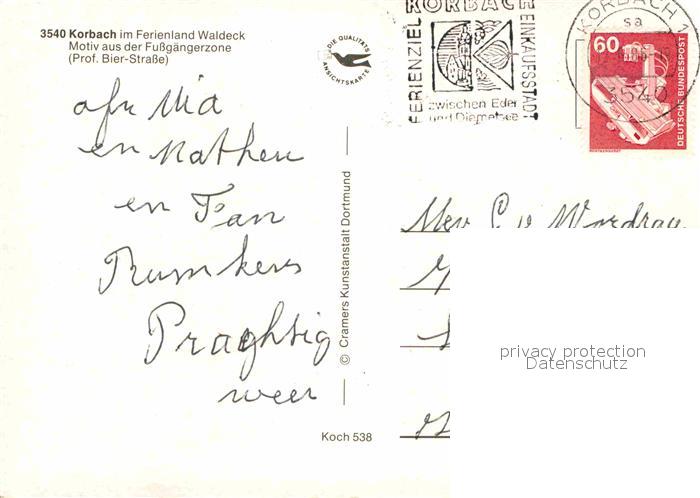 3540 Korbach im Ferienland Waldeck
Motiv aus der Fußgängerzone
(Prof. Bier-Straße)
DIE QUALITÄTS
ANSICHTSKARTE
FERIENZIEL
KORBACH
EINKAUFSSTADT
zwischen Eder
und Diemelsee
KORBACH 1
sa
3540
60
DEUTSCHE BUNDESPOST
afz Mia
en Matheu
en Fan
Rumkers
Praghtig
weer
© Cramers Kunstanstalt Dortmund
Koch 538
Mev C v
privacy protection
Datenschutz